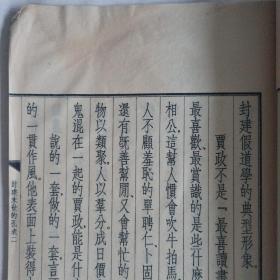 封建假道学的典型形象
贾政不是“最喜读書
最喜歡、最賞識的是些什麼
相公，這幫人慣會吹牛拍馬
人不顧羞恥的單聘仁、卜固
還有既善幫閒、又會幫忙的
物以類聚，人以羣分。成日價
鬼混在一起的贾政能是什
説的一套，做的一套，言
的一貫作風。他表面上裝得